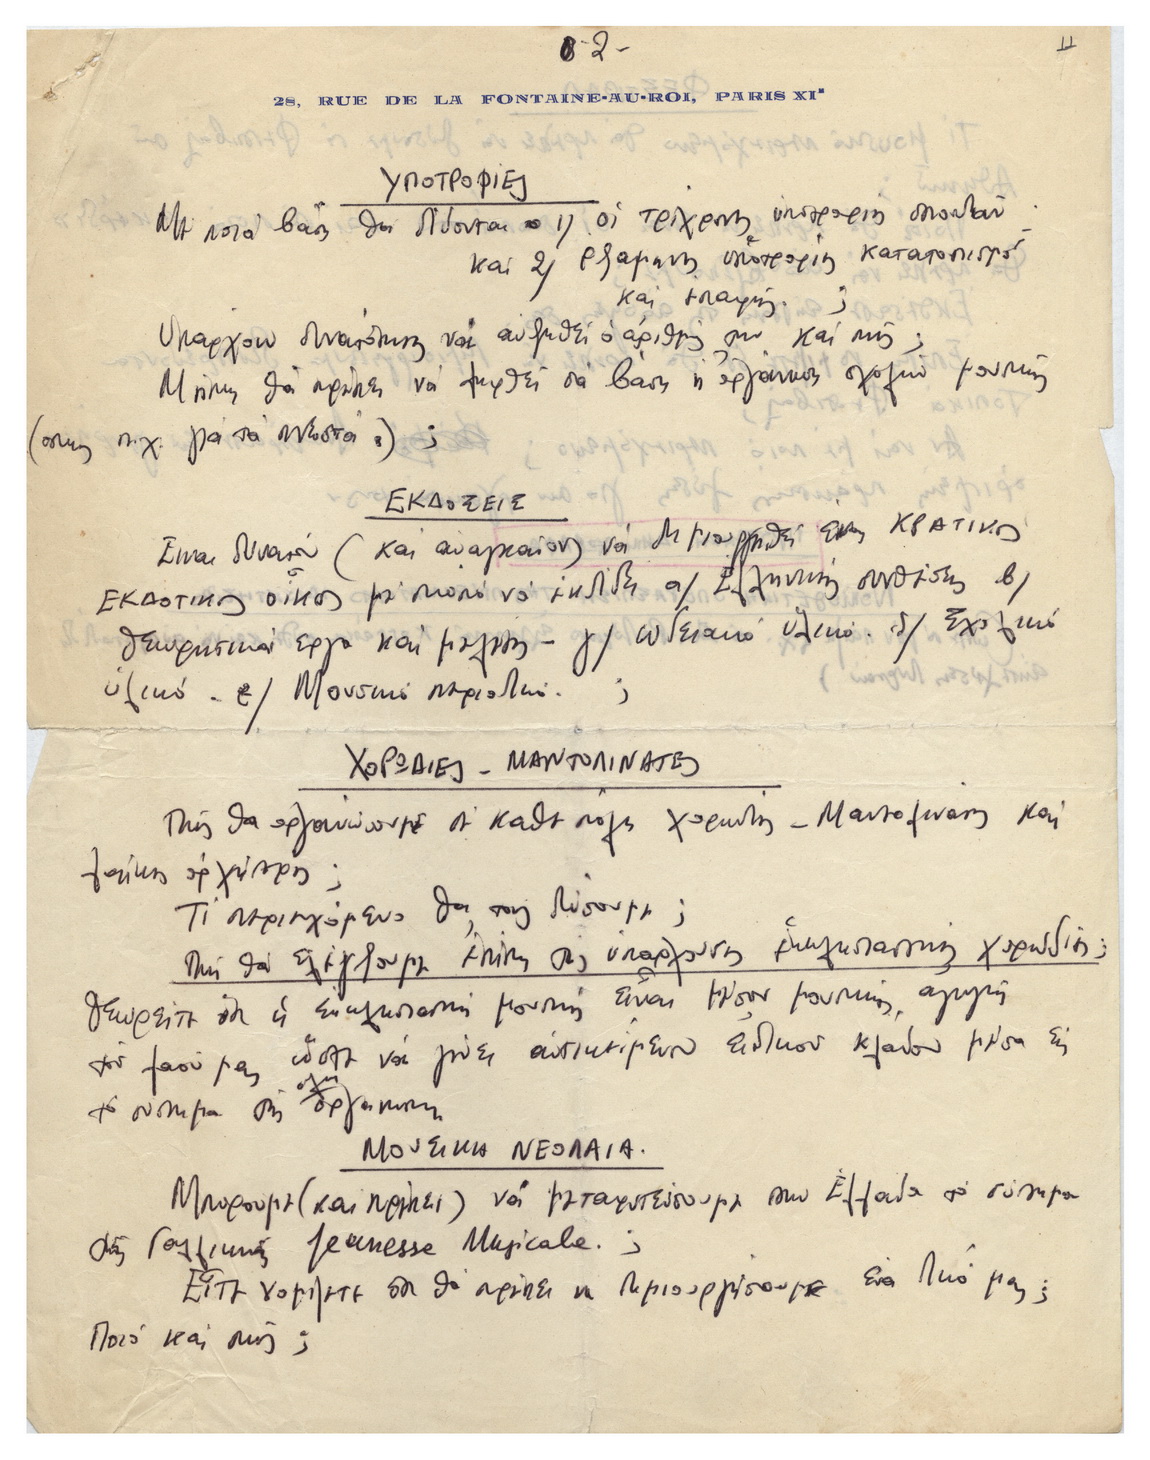 - 2 -
11
28, RUE DE LA FONTAINE-AU-ROI, PARIS XIe
ΥΠΟΤΡΟΦΙΕΣ
Με ποιά βάση θα δίδονται 1) οἱ τρίχρονες ὑποτροφίες σπουδῶν
και 2/ ἑξάμηνες ὑποτροφίες κατατοπισμοῦ
και ἐπαφῆς. ;
Υπάρχουν δυνατότητες νά αυξηθεί ὁ ἀριθμός των και πῶς ;
Μήπως θά πρέπει νά ψηφθεί σά βάση ἡ ὀργάνωση σχολικῆς μουσικῆς
(όπως π.χ. γιά τά πνευστά) ;
ΕΚΔΟΣΕΙΣ
Ειναι δυνατόν (και αναγκαίον) νά δημιουργηθεί ἕνας ΚΡΑΤΙΚΟΣ
ΕΚΔΟΤΙΚΟΣ οἶκος με σκοπό νά ἐκδίδει α/ Ἑλληνικές συνθέσεις β/
θεωρητικά εργα και μελέτες - γ/ ωδειακό ὑλικό. δ/ Σχολικό
ὑλικό - ε/ Μουσικό περιοδικό. ;
ΧΟΡΩΔΙΕΣ - ΜΑΝΤΟΛΙΝΑΤΕΣ
Πῶς θα οργανώσουμε σέ καθε πόλη χορωδίες - Μαντολινάτες και
λαϊκες ὀρχήστρες ;
Τί περιεχόμενο θα τους δώσουμε ;
Πῶς θά ελέγξουμε ἐπίσης τις ὑπάρχουσες ἐκκλησιαστικές χορωδίες ;
Θεωρείτε ὅτι ἡ ἐκκλησιαστική μουσική εἶναι μέσον μουσικῆς αγωγῆς
τοῦ λαού μας ὥστε νά γίνει ἀντικείμενον εἰδικοῦ κλάδου μέσα εἰς
τό σύστημα τῆς ὅλης ὀργανωσης
ΜΟΥΣΙΚΗ ΝΕΟΛΑΙΑ.
Μπορουμε (και πρέπει) νά μεταφυτεύσουμε στην Ἑλλαδα τό σύστημα
τῆς Γαλλικῆς Jeunesse Musicale. ;
Εἴτε νομίζετε ὅτι θά πρέπει να δημιουργήσουμε ἕνα δικό μας ;
Ποιό και πῶς ;